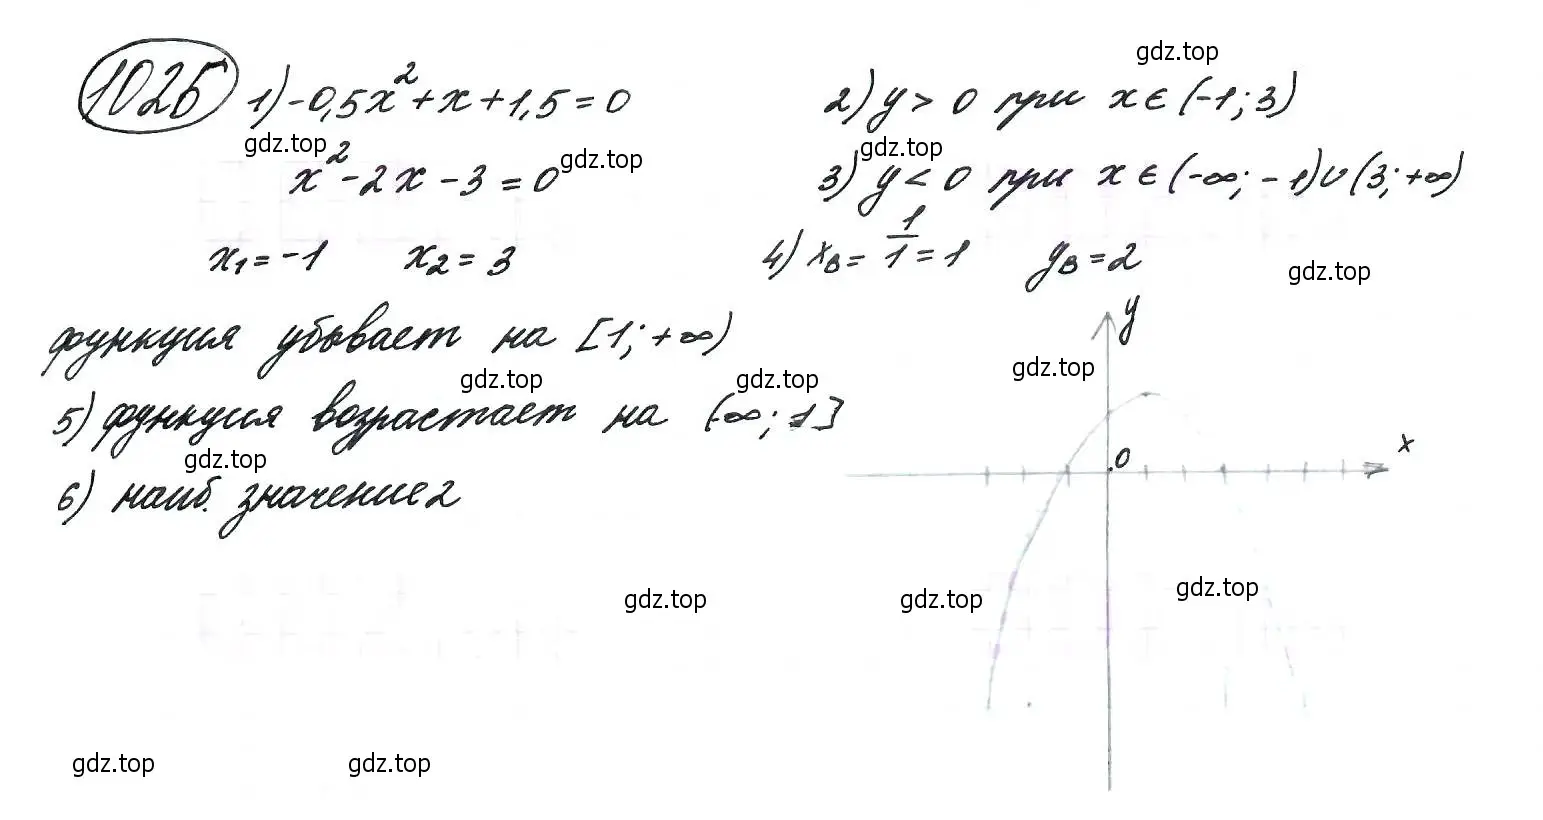 1026 1) -0,5x² + x + 1,5 = 0
x² - 2x - 3 = 0
x₁ = -1 x₂ = 3
2) y > 0 при x ∈ (-1; 3)
3) y < 0 при x ∈ (-∞; -1) ∪ (3; +∞)
4) xв = 1/1 = 1 yв = 2
функция убывает на [1; +∞)
5) функция возрастает на (-∞; 1]
6) наиб. значение 2
y
x
0
gdz.top
gdz.top
gdz.top
gdz.top
gdz.top
gdz.top
gdz.top
gdz.top
gdz.top
gdz.top
gdz.top
gdz.top
gdz.top
gdz.top